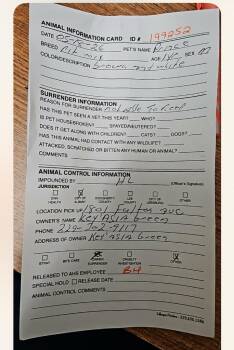 ANIMAL INFORMATION CARD ID # 199252
DATE 05-15-26 PET'S NAME Prince
BREED Pit mix AGE 1 yr SEX
COLOR/DESCRIPTION brown and white
SURRENDER INFORMATION
REASON FOR SURRENDER not able to keep
HAS THIS PET SEEN A VET THIS YEAR? WHO?
IS PET HOUSEBROKEN? SPAYED/NEUTERED?
DOES IT GET ALONG WITH CHILDREN? CATS? DOGS?
HAS THIS ANIMAL HAD CONTACT WITH ANY WILDLIFE?
ATTACKED, SCRATCHED OR BITTEN ANY HUMAN OR ANIMAL?
COMMENTS
ANIMAL CONTROL INFORMATION
IMPOUNDED BY (Officer's Signature)
JURISDICTION
CITY OF LEE COUNTY CITY OF OTHER
LOCATION PICK UP 1801 Fulton ave
OWNER'S NAME Key'Asia Green
PHONE 229-202-9117
ADDRESS OF OWNER Key'Asia Green
STRAY BITE CASE OWNER SURRENDER CRUELTY INVESTIGATION OTHER
RELEASED TO AHS EMPLOYEE BH
SPECIAL HOLD RELEASE DATE
ANIMAL CONTROL COMMENTS